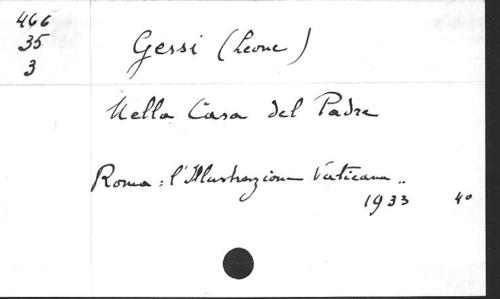 466
35
3
Gessi (Leone)
Nella Casa del Padre
Roma: l'Illustrazione Vaticana..
1933 4°